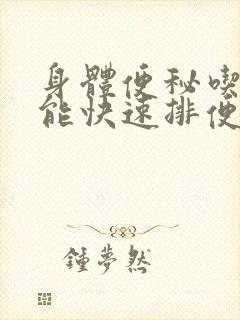 身體便秘喫
能快速排便
鍾夢然